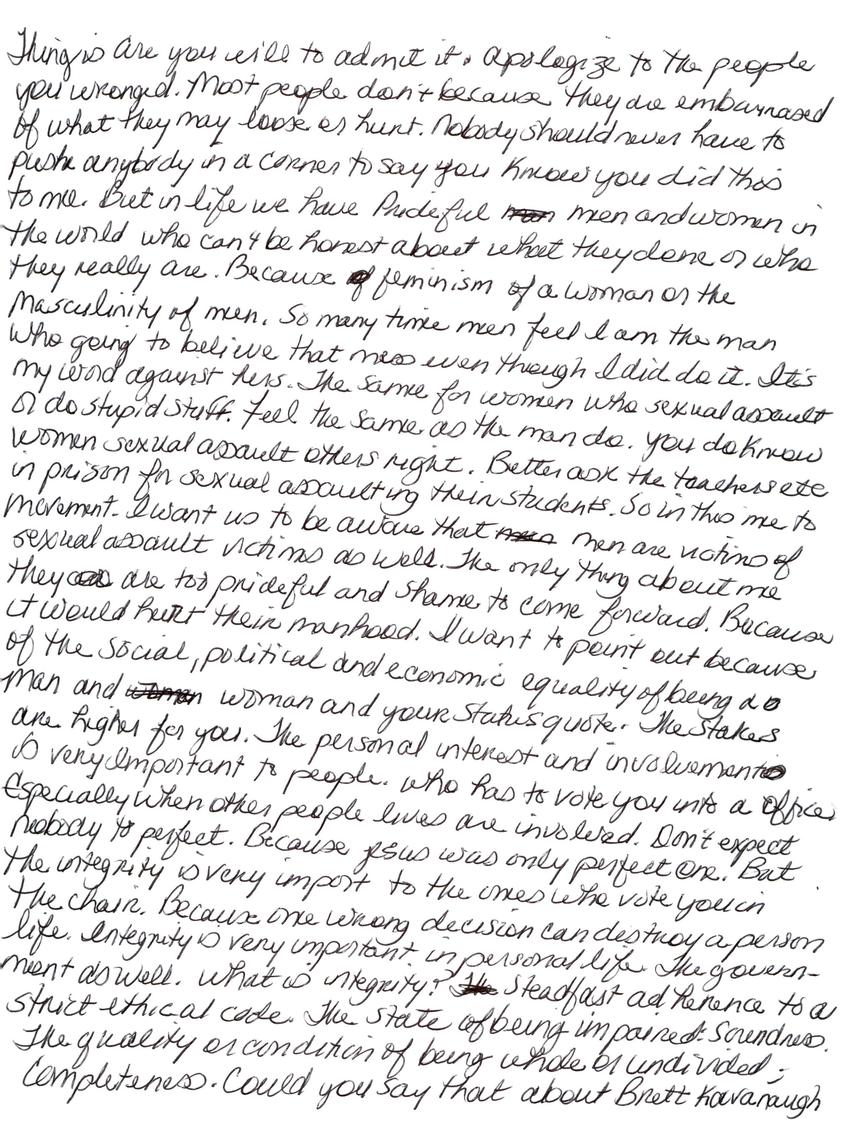 Thing is are you will to admit it. Apologize to the people
you wronged. Most people don't because they are embarrased
of what they may loose or hurt. Nobody should never have to
push anybody in a corner to say you know you did this
to me. But in life we have Prideful men and women in
the world who can't be honest about what they done or who
they really are. Because feminism of a woman or the
Masculinity of men. So many time men feel I am the man
who going to believe that even though I did do it. It's
my word against hers. The same for women who sexual assault
or do stupid stuff. Feel the same as the man do. You do know
women sexual assault others right. Better ask the teachers etc
in prison for sexual assaulting their students. So in this me to
movement. I want us to be aware that men are victims of
sexual assault victims as well. The only thing about me
they are too prideful and shame to come forward. Because
it would hurt their manhood. I want to point out because
of the social, political and economic equality of being a
man and woman and your status quote. The stakes
are higher for you. The personal interest and involvement
is very important to people. who has to vote you into a office
Especially when other people lives are involved. Don't expect
nobody to perfect. Because Jesus was only perfect one. But
the integrity is very import to the ones who vote you in
the chair. Because one wrong decision can destroy a person
life. Integrity is very important in personal life. The govern-
ment as well. What is integrity? Steadfast adherence to a
strict ethical code. The state of being impaired: Soundness.
The quality or condition of being whole or undivided;
Completeness. Could you say that about Brett Kavanaugh